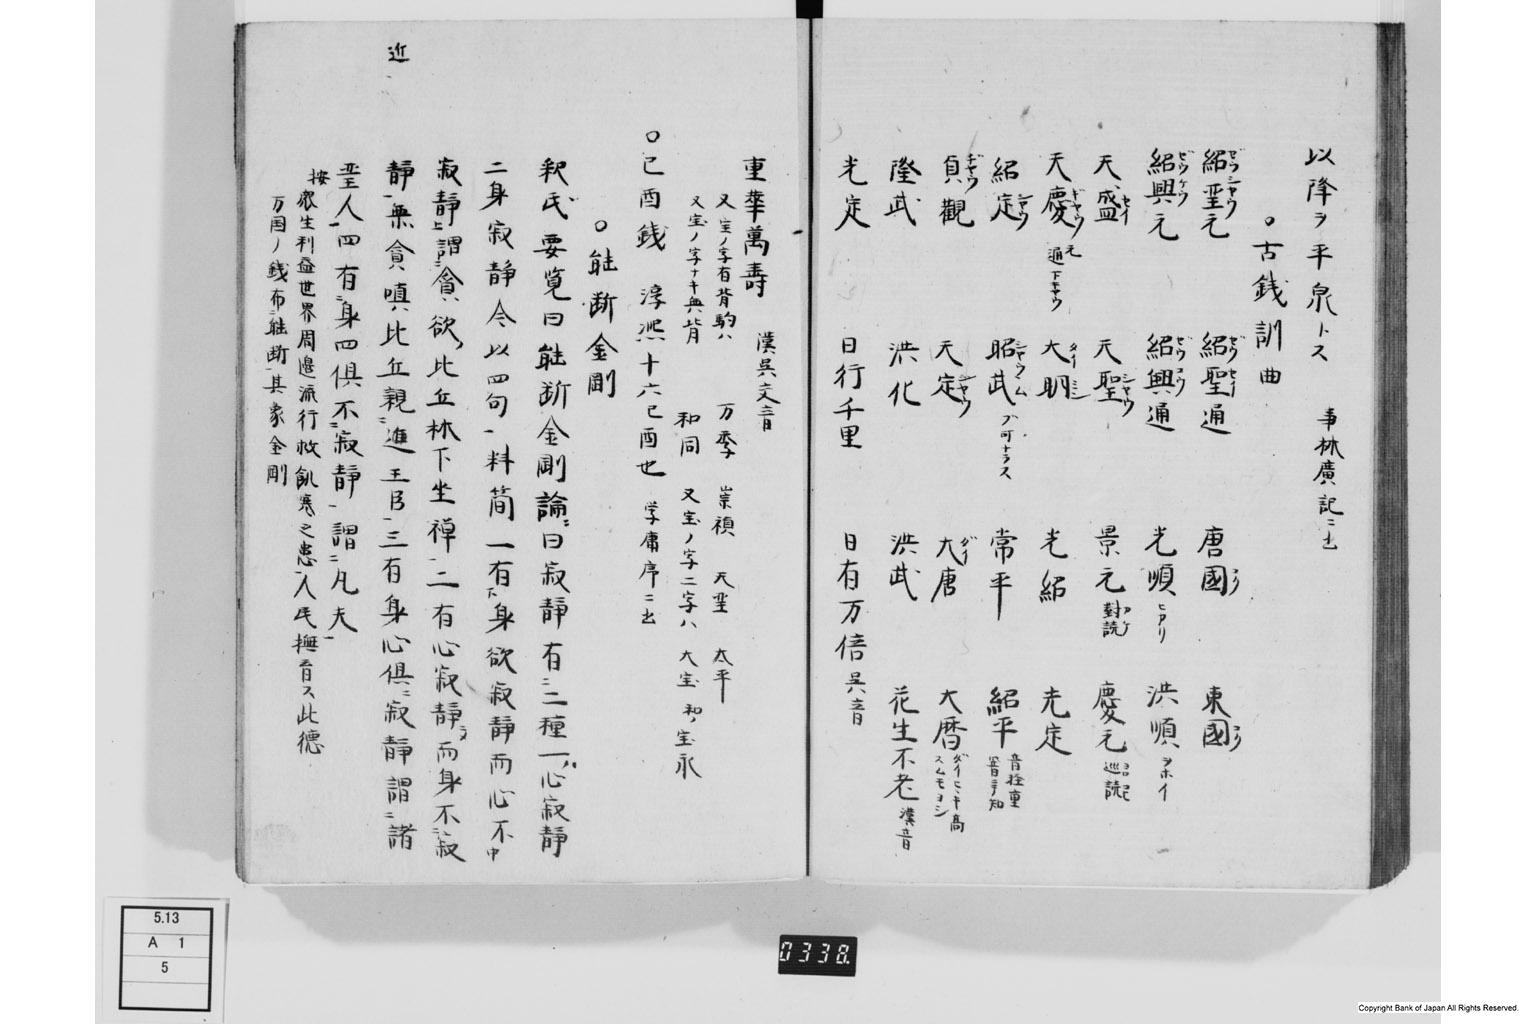 以降ヲ平泉トス　事林廣記ニ出
○古銭訓曲
紹聖元　紹聖通　唐國　東國
紹興元　紹興通　光順　洪順
天盛　天聖　景元 對読　慶元 巡読
天慶 元通　大明　光紹　光定
紹定　昭武　常平　紹平
貞觀　天定　大唐　大暦
隆武　洪化　洪武　花生不老 漢音
光定　日行千里　日有万倍 呉音
重華萬壽　漢呉交音
又宝ノ字有背駒ハ　万季　崇禎　天聖　太平
又宝ノ字ナキ無背　和同　又宝ノ字二字ハ　大宝　和ノ宝永
○己酉銭　淳熙十六己酉也　学庸序ニ出
○能断金剛
釈氏要覧曰能断金剛論ニ曰寂静有ニ二種一ハ心寂静
二身寂静今以四句料簡一有下身欲寂静而心不中
寂静上謂ニ貪欲比丘林下坐禅二有心寂静而身不寂
近
静無貪嗔比丘親ニ進王臣三有身心俱ニ寂静謂ニ諸
聖人四有ニ身四俱不ニ寂静謂ニ凡夫
按衆生利益世界周邉流行救飢寒之患人民撫育ス此德
万国ノ銭布ニ能断其象金剛
5.13
A 1
5
0338.
Copyright Bank of Japan All Rights Reserved.